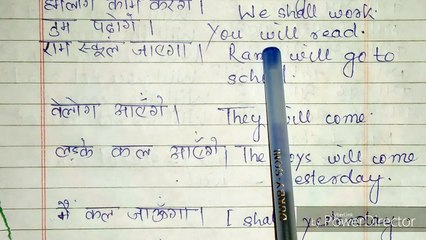 हमलोग काम करेंगे। We shall work.
तुम पढ़ोगे। You will read.
राम स्कूल जाएगा। Ram will go to
school.
वेलोग आएँगे। They will come.
लड़के कल आएँगे। The boys will come
yesterday.
मैं कल जाऊँगा। I shall
PowerDirector